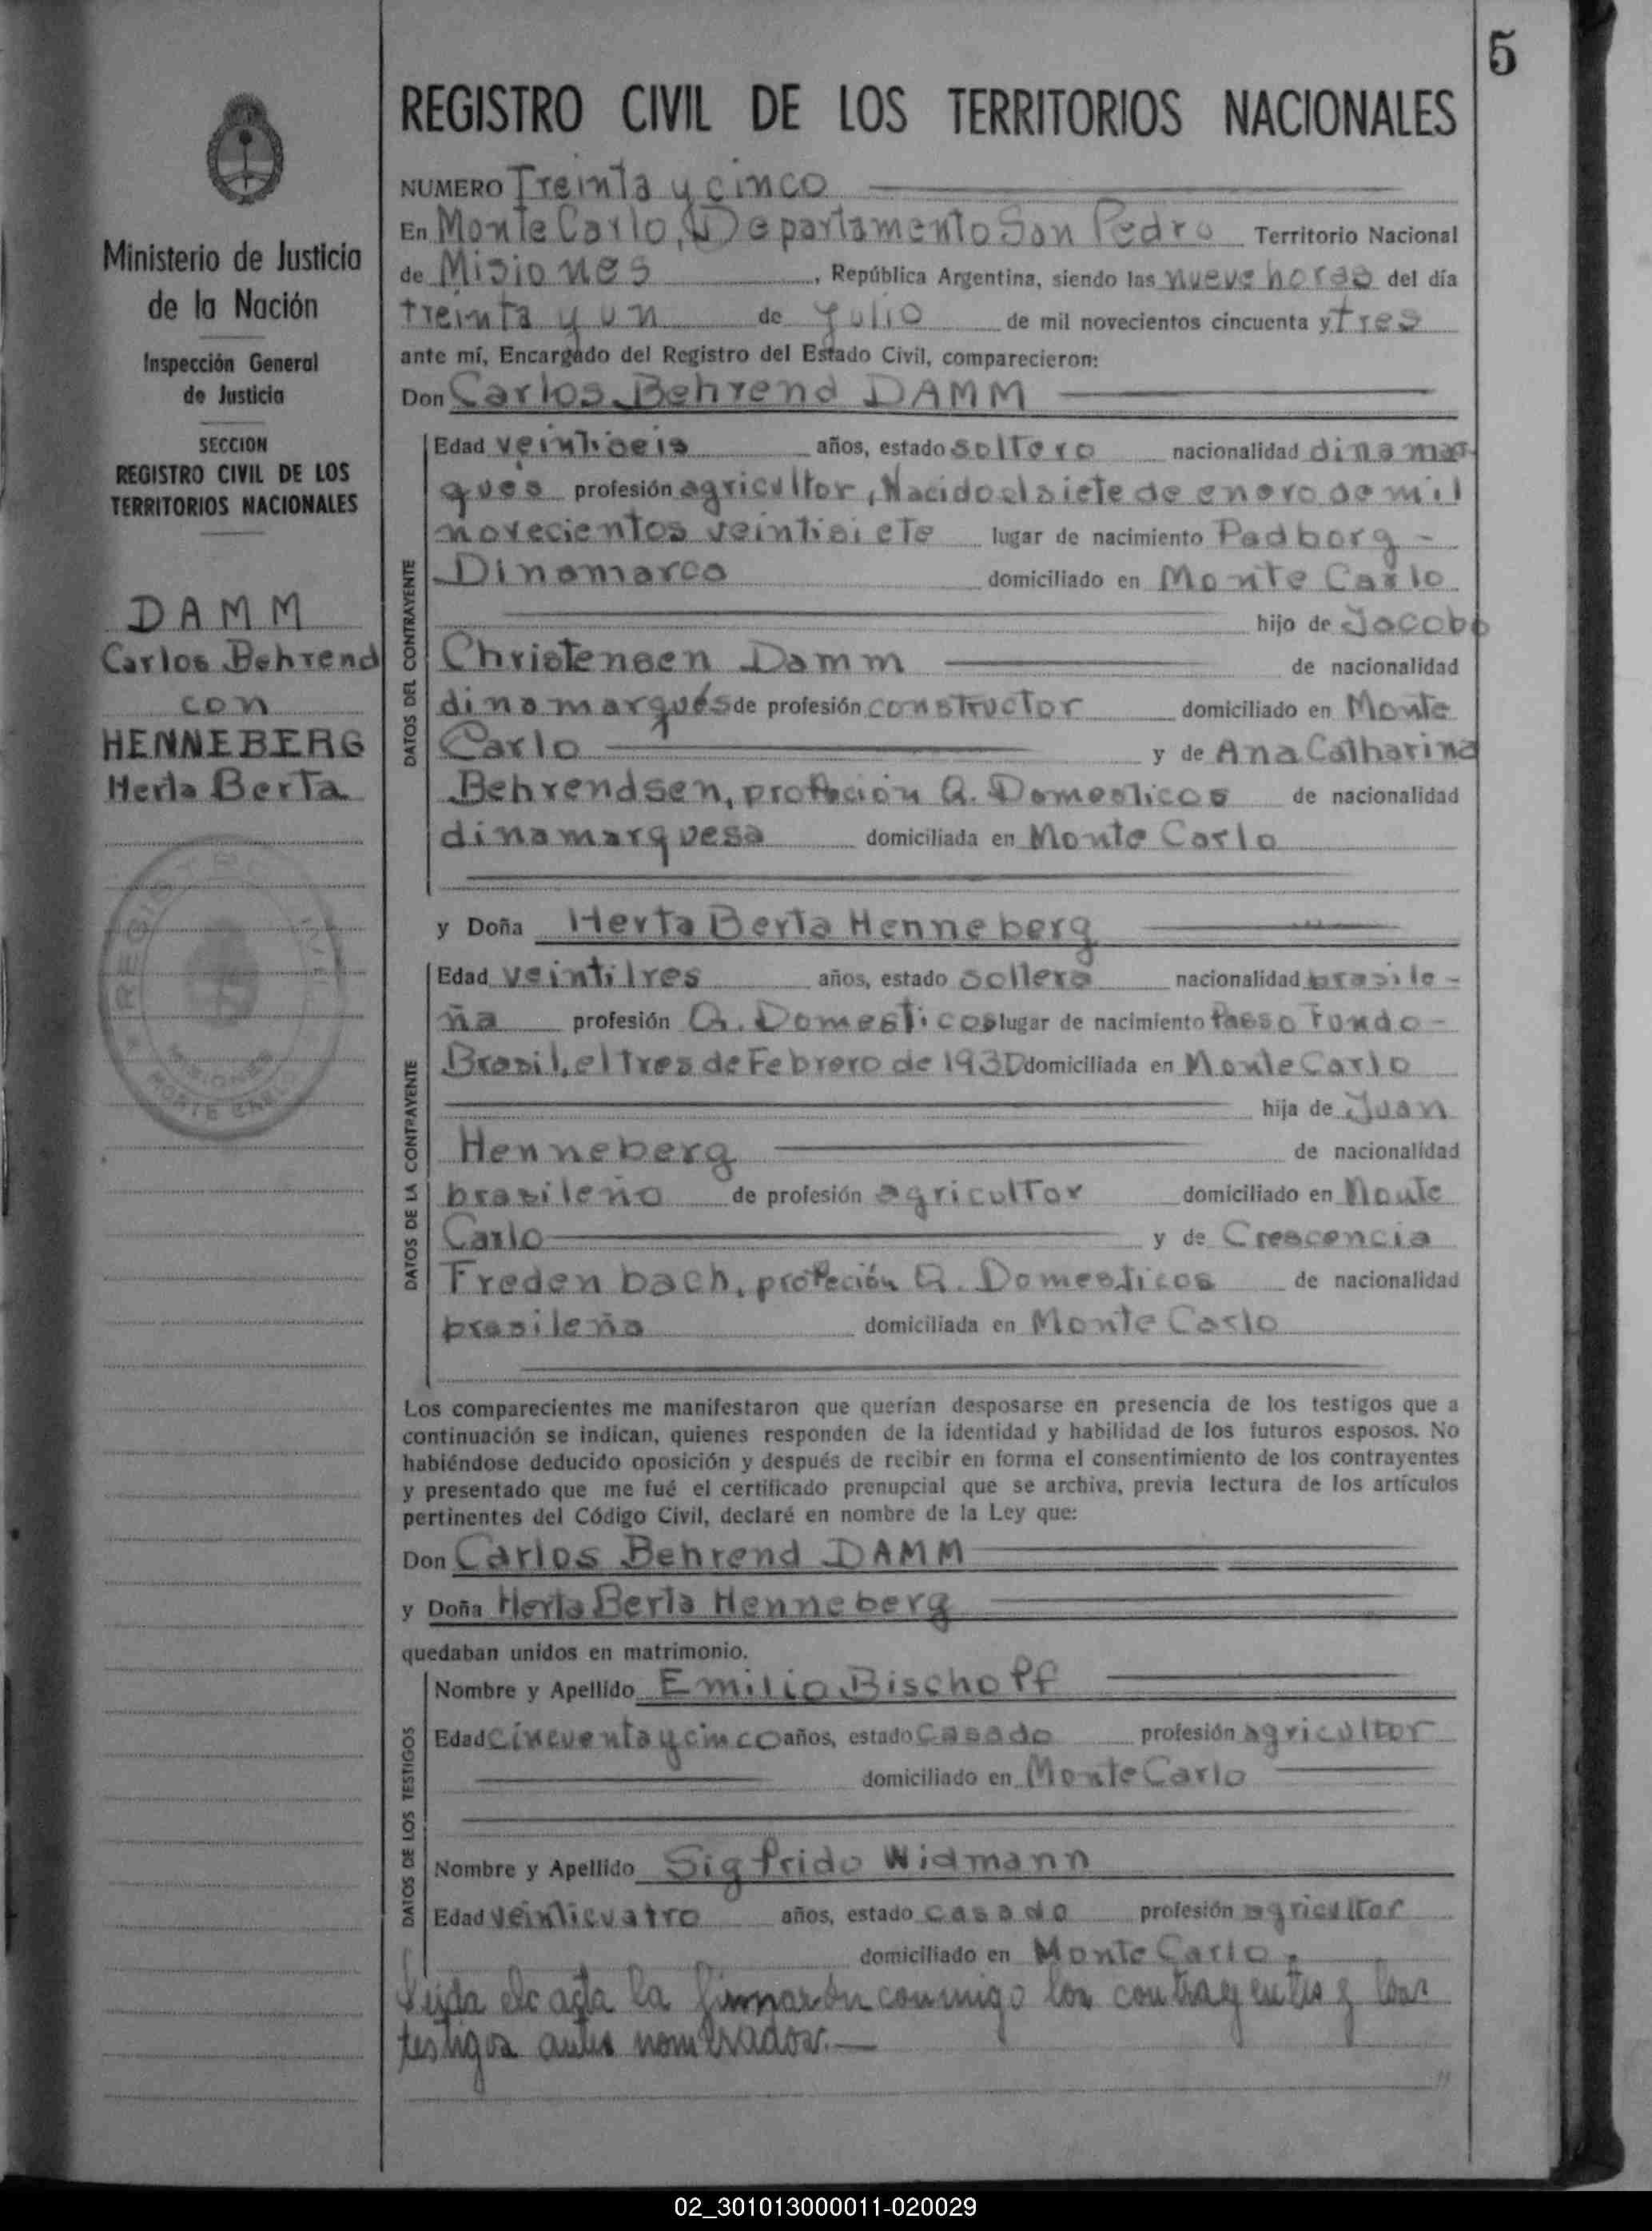 5
REGISTRO CIVIL DE LOS TERRITORIOS NACIONALES
Ministerio de Justicia
de la Nación
Inspección General
de Justicia
SECCION
REGISTRO CIVIL DE LOS
TERRITORIOS NACIONALES
DAMM
Carlos Behrend
con
HENNEBERG
Herta Berta
REGISTRO CIVIL
MISIONES
MONTE CARLO
NUMERO Treinta y cinco
En Monte Carlo, Departamento San Pedro Territorio Nacional
de Misiones, República Argentina, siendo las nueve horas del día
treinta y un de Julio de mil novecientos cincuenta y tres
ante mí, Encargado del Registro del Estado Civil, comparecieron:
Don Carlos Behrend DAMM
DATOS DEL CONTRAYENTE
Edad veintiseis años, estado soltero nacionalidad dinamar
ques profesión agricultor, Nacido el siete de enero de mil
novecientos veintisiete lugar de nacimiento Padborg -
Dinamarca domiciliado en Monte Carlo
hijo de Jacobo
Christensen Damm de nacionalidad
dinamarqués de profesión constructor domiciliado en Monte
Carlo y de Ana Catharina
Behrendsen, profeción Q. Domesticos de nacionalidad
dinamarquesa domiciliada en Monte Carlo
y Doña Herta Berta Henneberg
DATOS DE LA CONTRAYENTE
Edad veintitres años, estado soltera nacionalidad brasile-
ña profesión Q. Domesticos lugar de nacimiento Passo Fundo -
Brasil, el tres de Febrero de 1930 domiciliada en Monte Carlo
hija de Juan
Henneberg de nacionalidad
brasileño de profesión agricultor domiciliado en Monte
Carlo y de Crescencia
Fredenbach, profeción Q. Domesticos de nacionalidad
brasileña domiciliada en Monte Carlo
Los comparecientes me manifestaron que querían desposarse en presencia de los testigos que a
continuación se indican, quienes responden de la identidad y habilidad de los futuros esposos. No
habiéndose deducido oposición y después de recibir en forma el consentimiento de los contrayentes
y presentado que me fué el certificado prenupcial que se archiva, previa lectura de los artículos
pertinentes del Código Civil, declaré en nombre de la Ley que:
Don Carlos Behrend DAMM
y Doña Herta Berta Henneberg
quedaban unidos en matrimonio.
DATOS DE LOS TESTIGOS
Nombre y Apellido Emilio Bischoff
Edad cincuenta y cinco años, estado casado profesión agricultor
domiciliado en Monte Carlo
Nombre y Apellido Sigfrido Widmann
Edad veinticuatro años, estado casado profesión agricultor
domiciliado en Monte Carlo.
Leida el acta la firmarón conmigo los contrayentes y los
testigos antes nombrados.—
02_301013000011-020029